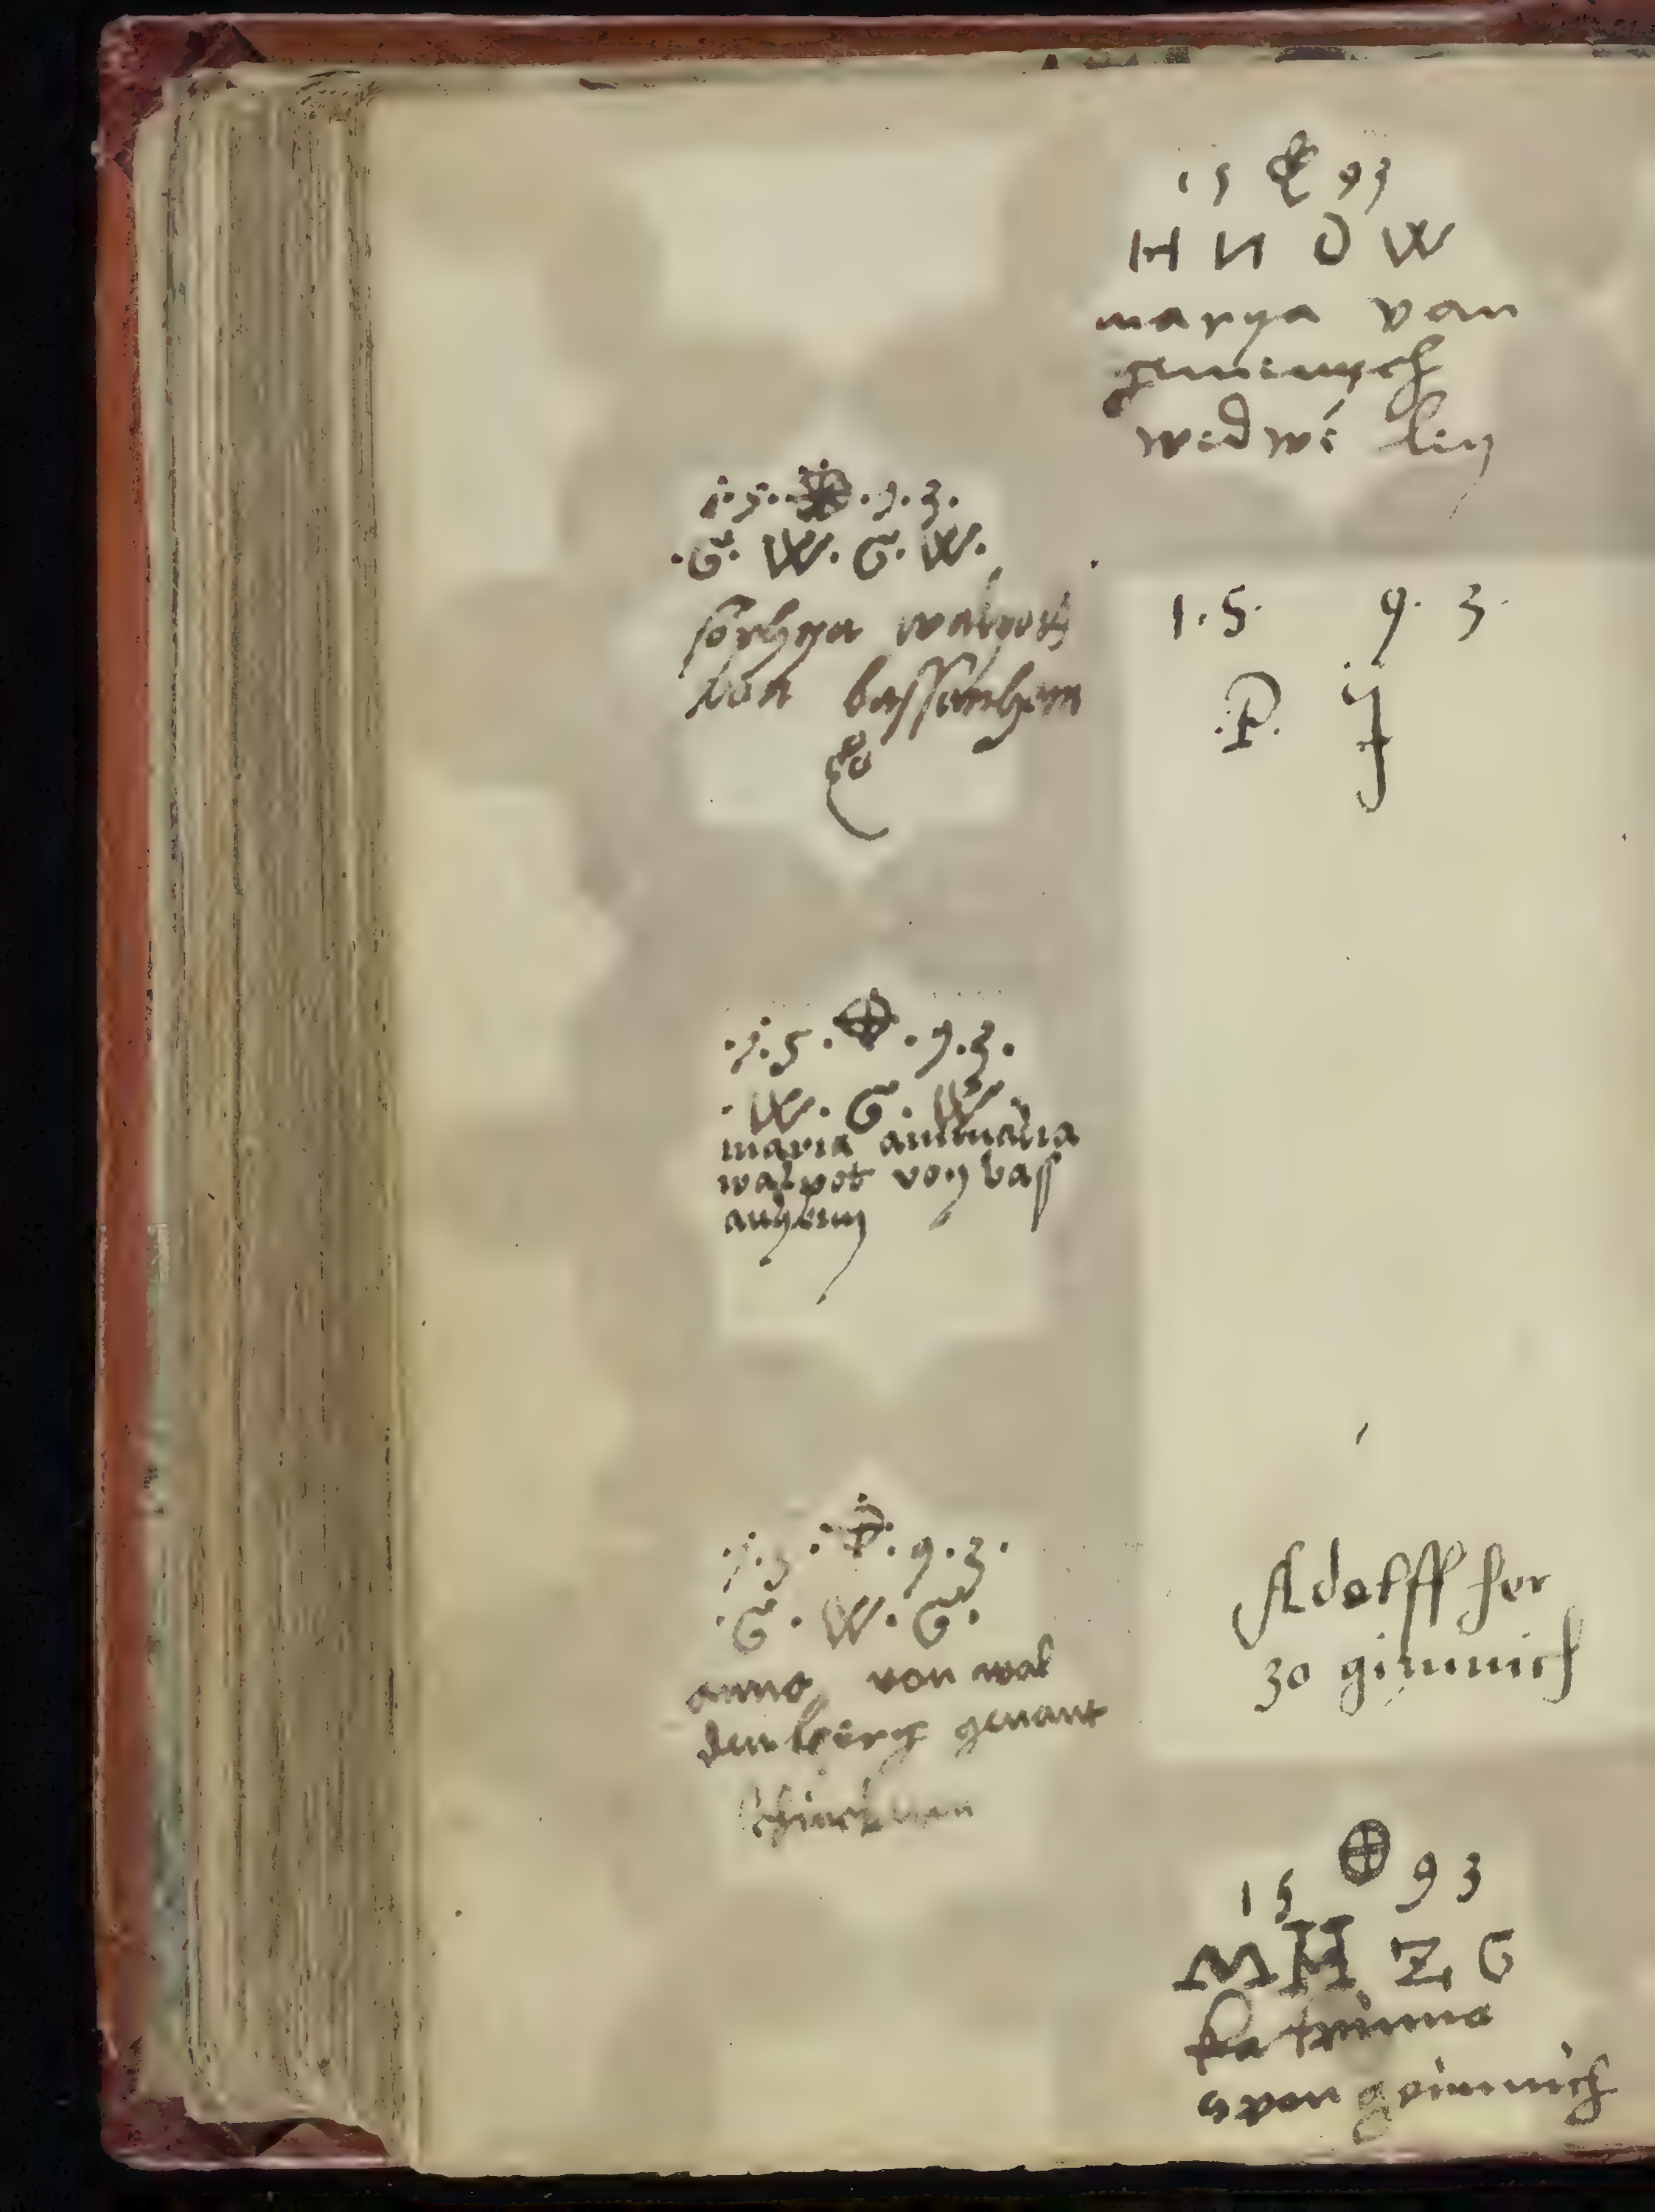 15 93
H N G W
marya von
gimmich
wedwe
.1.5. .9.3.
.G. W. G. W.
sophya walpott
von bassenhem
1.5. 9.3.
.P. J
.1.5. .9.3.
.W. G. W.
maria ammalia
walpot von bass
enheim
.1.5. .9.3.
.G. W. G.
anna von wal
denberg genant
schinckern
Adolff her
zo gimnich
15 93
M H Z G
katrinna
von geimnich